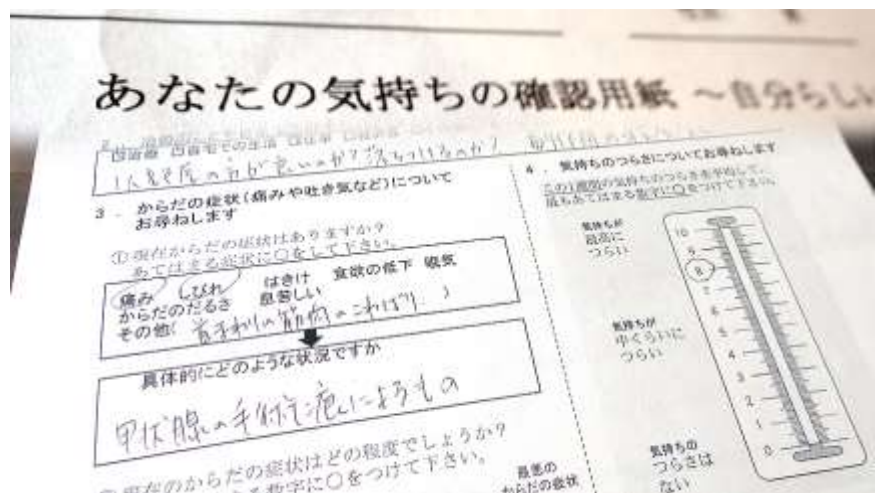 あなたの気持ちの確認用紙 ～自分らしい
人多い度の方が良いのか？
3. からだの症状(痛みや吐き気など)について
お尋ねします
①現在からだの症状はありますか？
あてはまる症状に○をして下さい。
痛み しびれ はきけ 食欲の低下 眠気
からだのだるさ 息苦しい
その他( 首まわりの筋肉のこわばり..)
具体的にどのような状況ですか
甲状腺の手術痕によるもの
現在のからだの症状はどの程度でしょうか？
数字に○をつけて下さい。
最悪の
からだの症状
4. 気持ちのつらさについてお尋ねします
この1週間の気持ちのつらさを平均して、
最もあてはまる数字に○をつけて下さい。
気持ちが
最高に
つらい
気持ちが
中くらいに
つらい
気持ちの
つらさは
ない
10
9
8
7
6
5
4
3
2
1
0